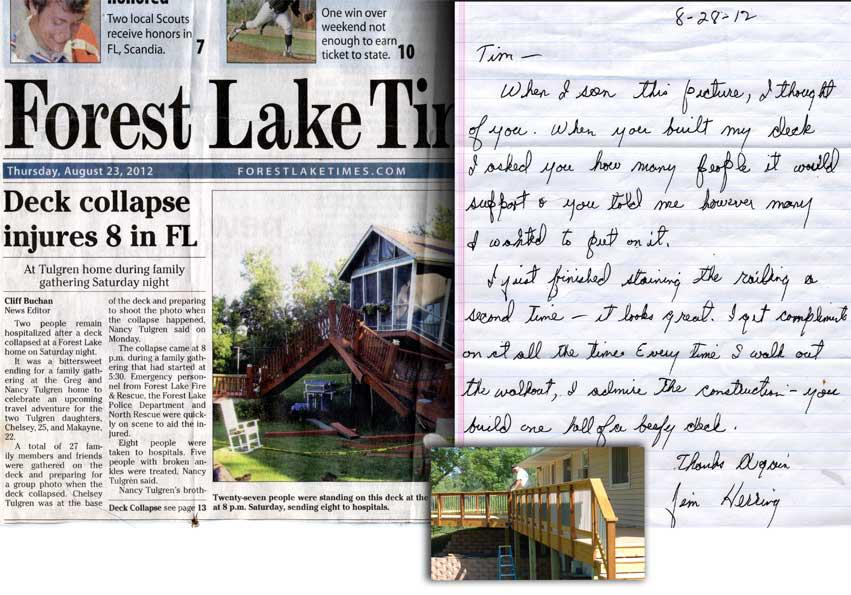 honored
Two local Scouts
receive honors in
FL, Scandia. 7
One win over
weekend not
enough to earn
ticket to state. 10
Forest Lake Ti
Thursday, August 23, 2012
FORESTLAKETIMES.COM
Deck collapse
injures 8 in FL
At Tulgren home during family
gathering Saturday night
Cliff Buchan
News Editor
Two people remain
hospitalized after a deck
collapsed at a Forest Lake
home on Saturday night.
It was a bittersweet
ending for a family gath-
ering at the Greg and
Nancy Tulgren home to
celebrate an upcoming
travel adventure for the
two Tulgren daughters,
Chelsey, 25, and Makayne,
22.
A total of 27 fam-
ily members and friends
were gathered on the
deck and preparing for
a group photo when the
deck collapsed. Chelsey
Tulgren was at the base
of the deck and preparing
to shoot the photo when
the collapse happened,
Nancy Tulgren said on
Monday.
The collapse came at 8
p.m. during a family gath-
ering that had started at
5:30. Emergency person-
nel from Forest Lake Fire
& Rescue, the Forest Lake
Police Department and
North Rescue were quick-
ly on scene to aid the in-
jured.
Eight people were
taken to hospitals. Five
people with broken an-
kles were treated, Nancy
Tulgren said.
Nancy Tulgren's broth-
Deck Collapse see page 13
Twenty-seven people were standing on this deck at the
at 8 p.m. Saturday, sending eight to hospitals.
8-28-12
Tim —
When I seen this picture, I thought
of you. When you built my deck
I asked you how many people it would
support & you told me however many
I wanted to put on it.
I just finished staining the railing a
second time — it looks great. I get compliments
on it all the time. Every time I walk out
the walkout, I admire the construction - you
build one hell of a beefy deck.
Thanks Again
Jim Herring